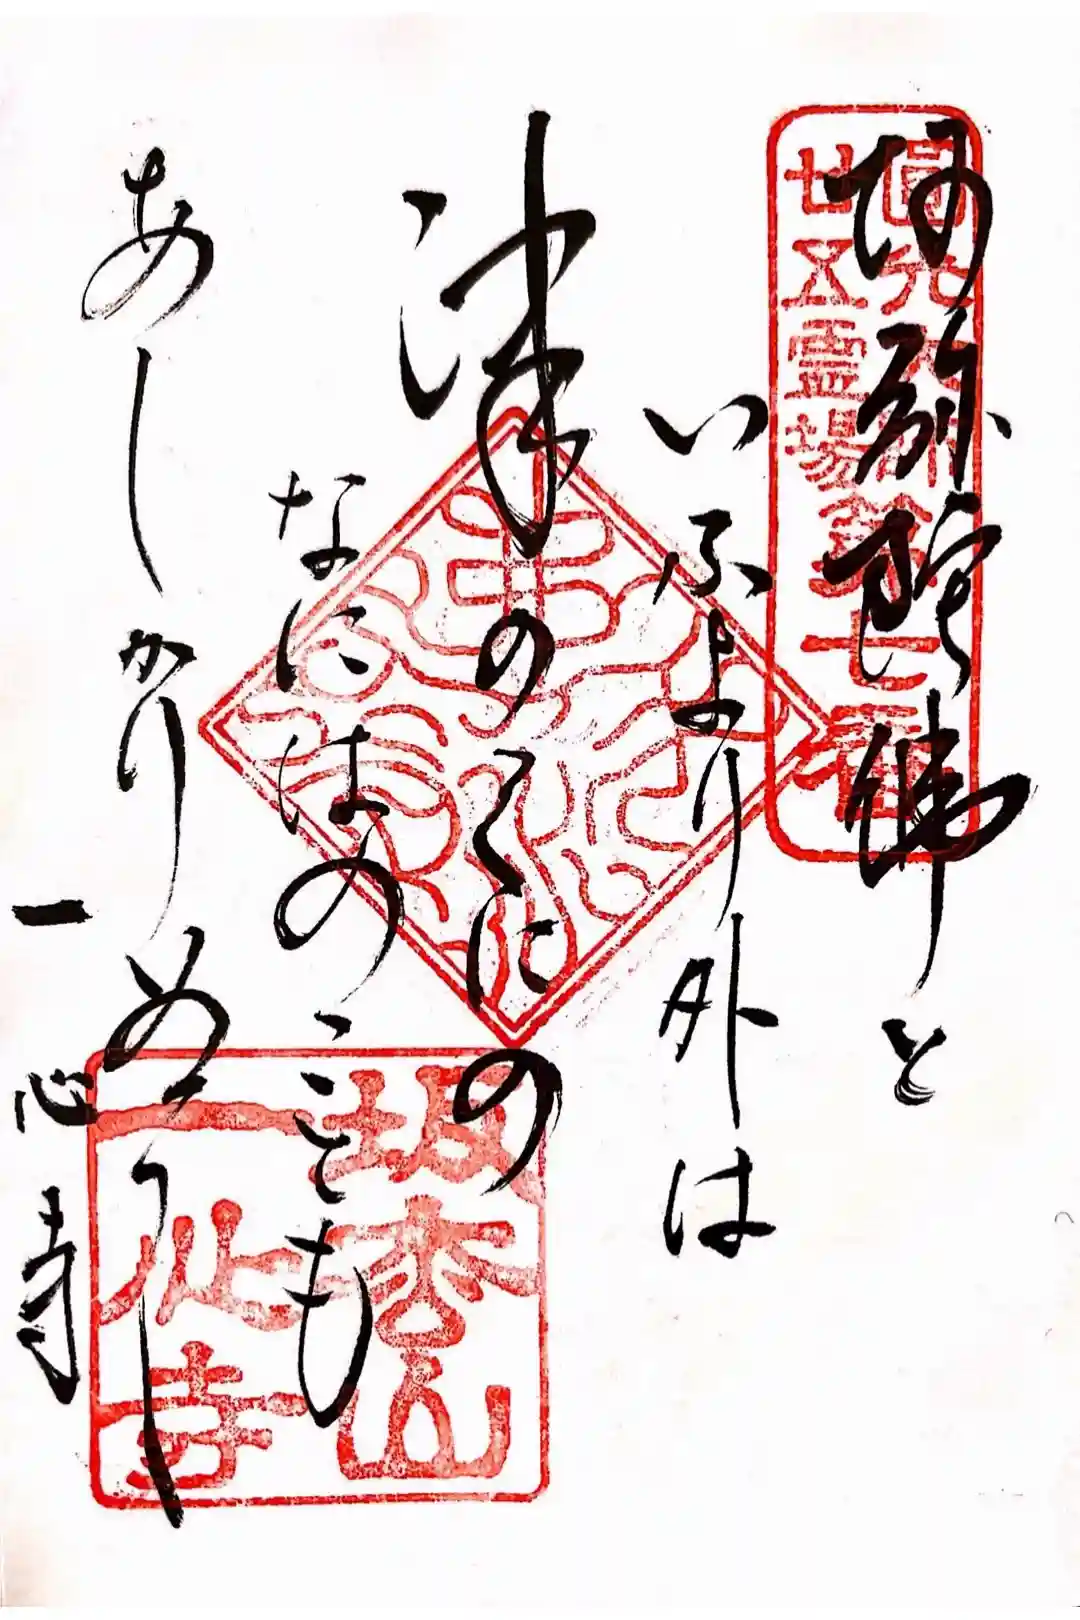 圓光大師
廿五霊場
第七番
阿弥陀佛と
いふより外は
津のくにの
なにはのことも
あしかりぬへし
一心寺
坂松山
一心寺